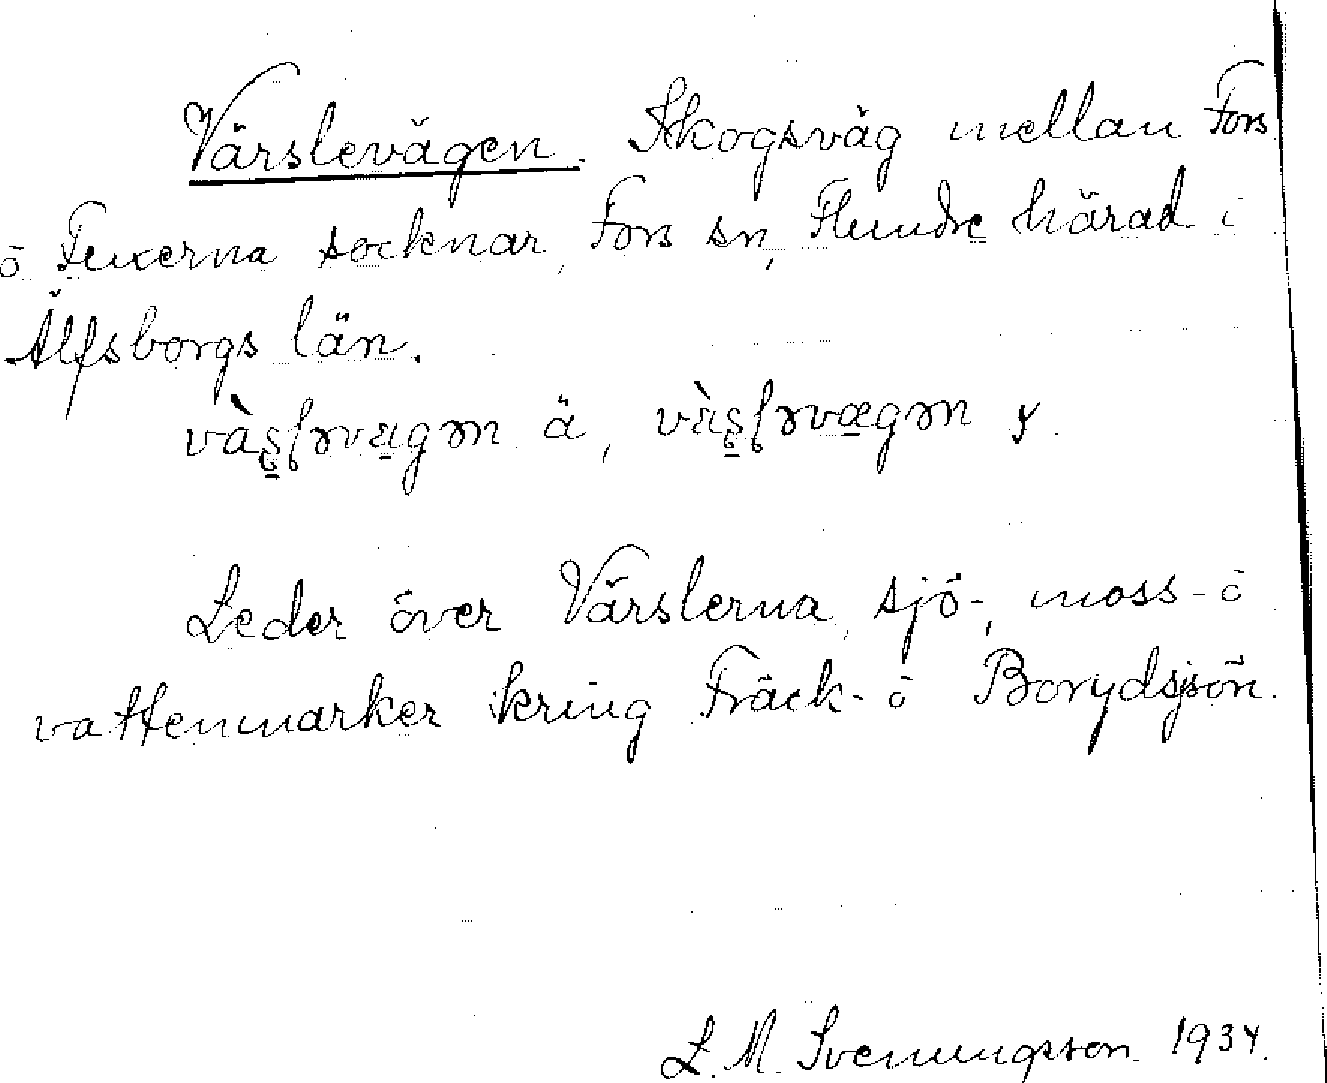 Värslevägen. Skogsväg mellan Fors
o Fuxerna socknar, Fors sn, Flundre härad i
Älfsborgs län.
ä, y.
Leder över Värslerna, sjö-, moss- o
vattenmarker kring Fräck- o Borydsjön.
L. M. Svenungsson 1934.